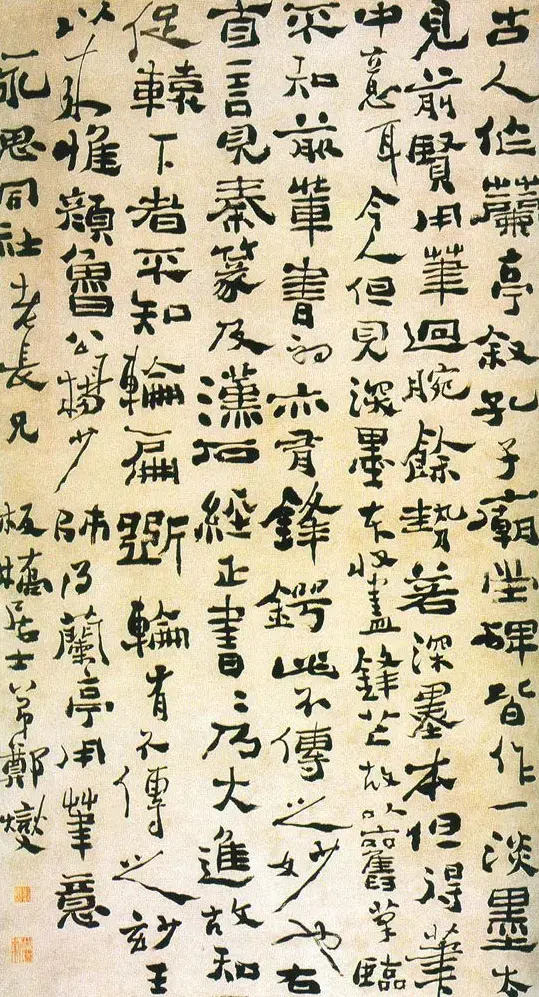 古人作蘭亭敘孔子廟堂碑皆作一淡墨本
見前賢用筆迴腕餘勢若深墨本但得筆
中意耳今人但見深墨本收盡鋒芒故以舊筆臨
不知前輩書初亦有鋒鍔此不傳之妙也右
自言見秦篆及漢石經正書〻乃大進故知
促轅下者不知輪扁斲輪有不傳之妙王
以來惟顏魯公楊少師得蘭亭用筆意
思同社老長兄 板橋居士弟鄭燮